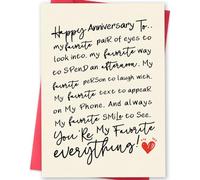 Happy Anniversary To...
my favorite pair of eyes to
look into. my favorite way
to spend an afternoon. My
favorite person to laugh with.
My favorite text to appear
on My Phone. And always
My favorite smile to see.
You're My Favorite
everything!